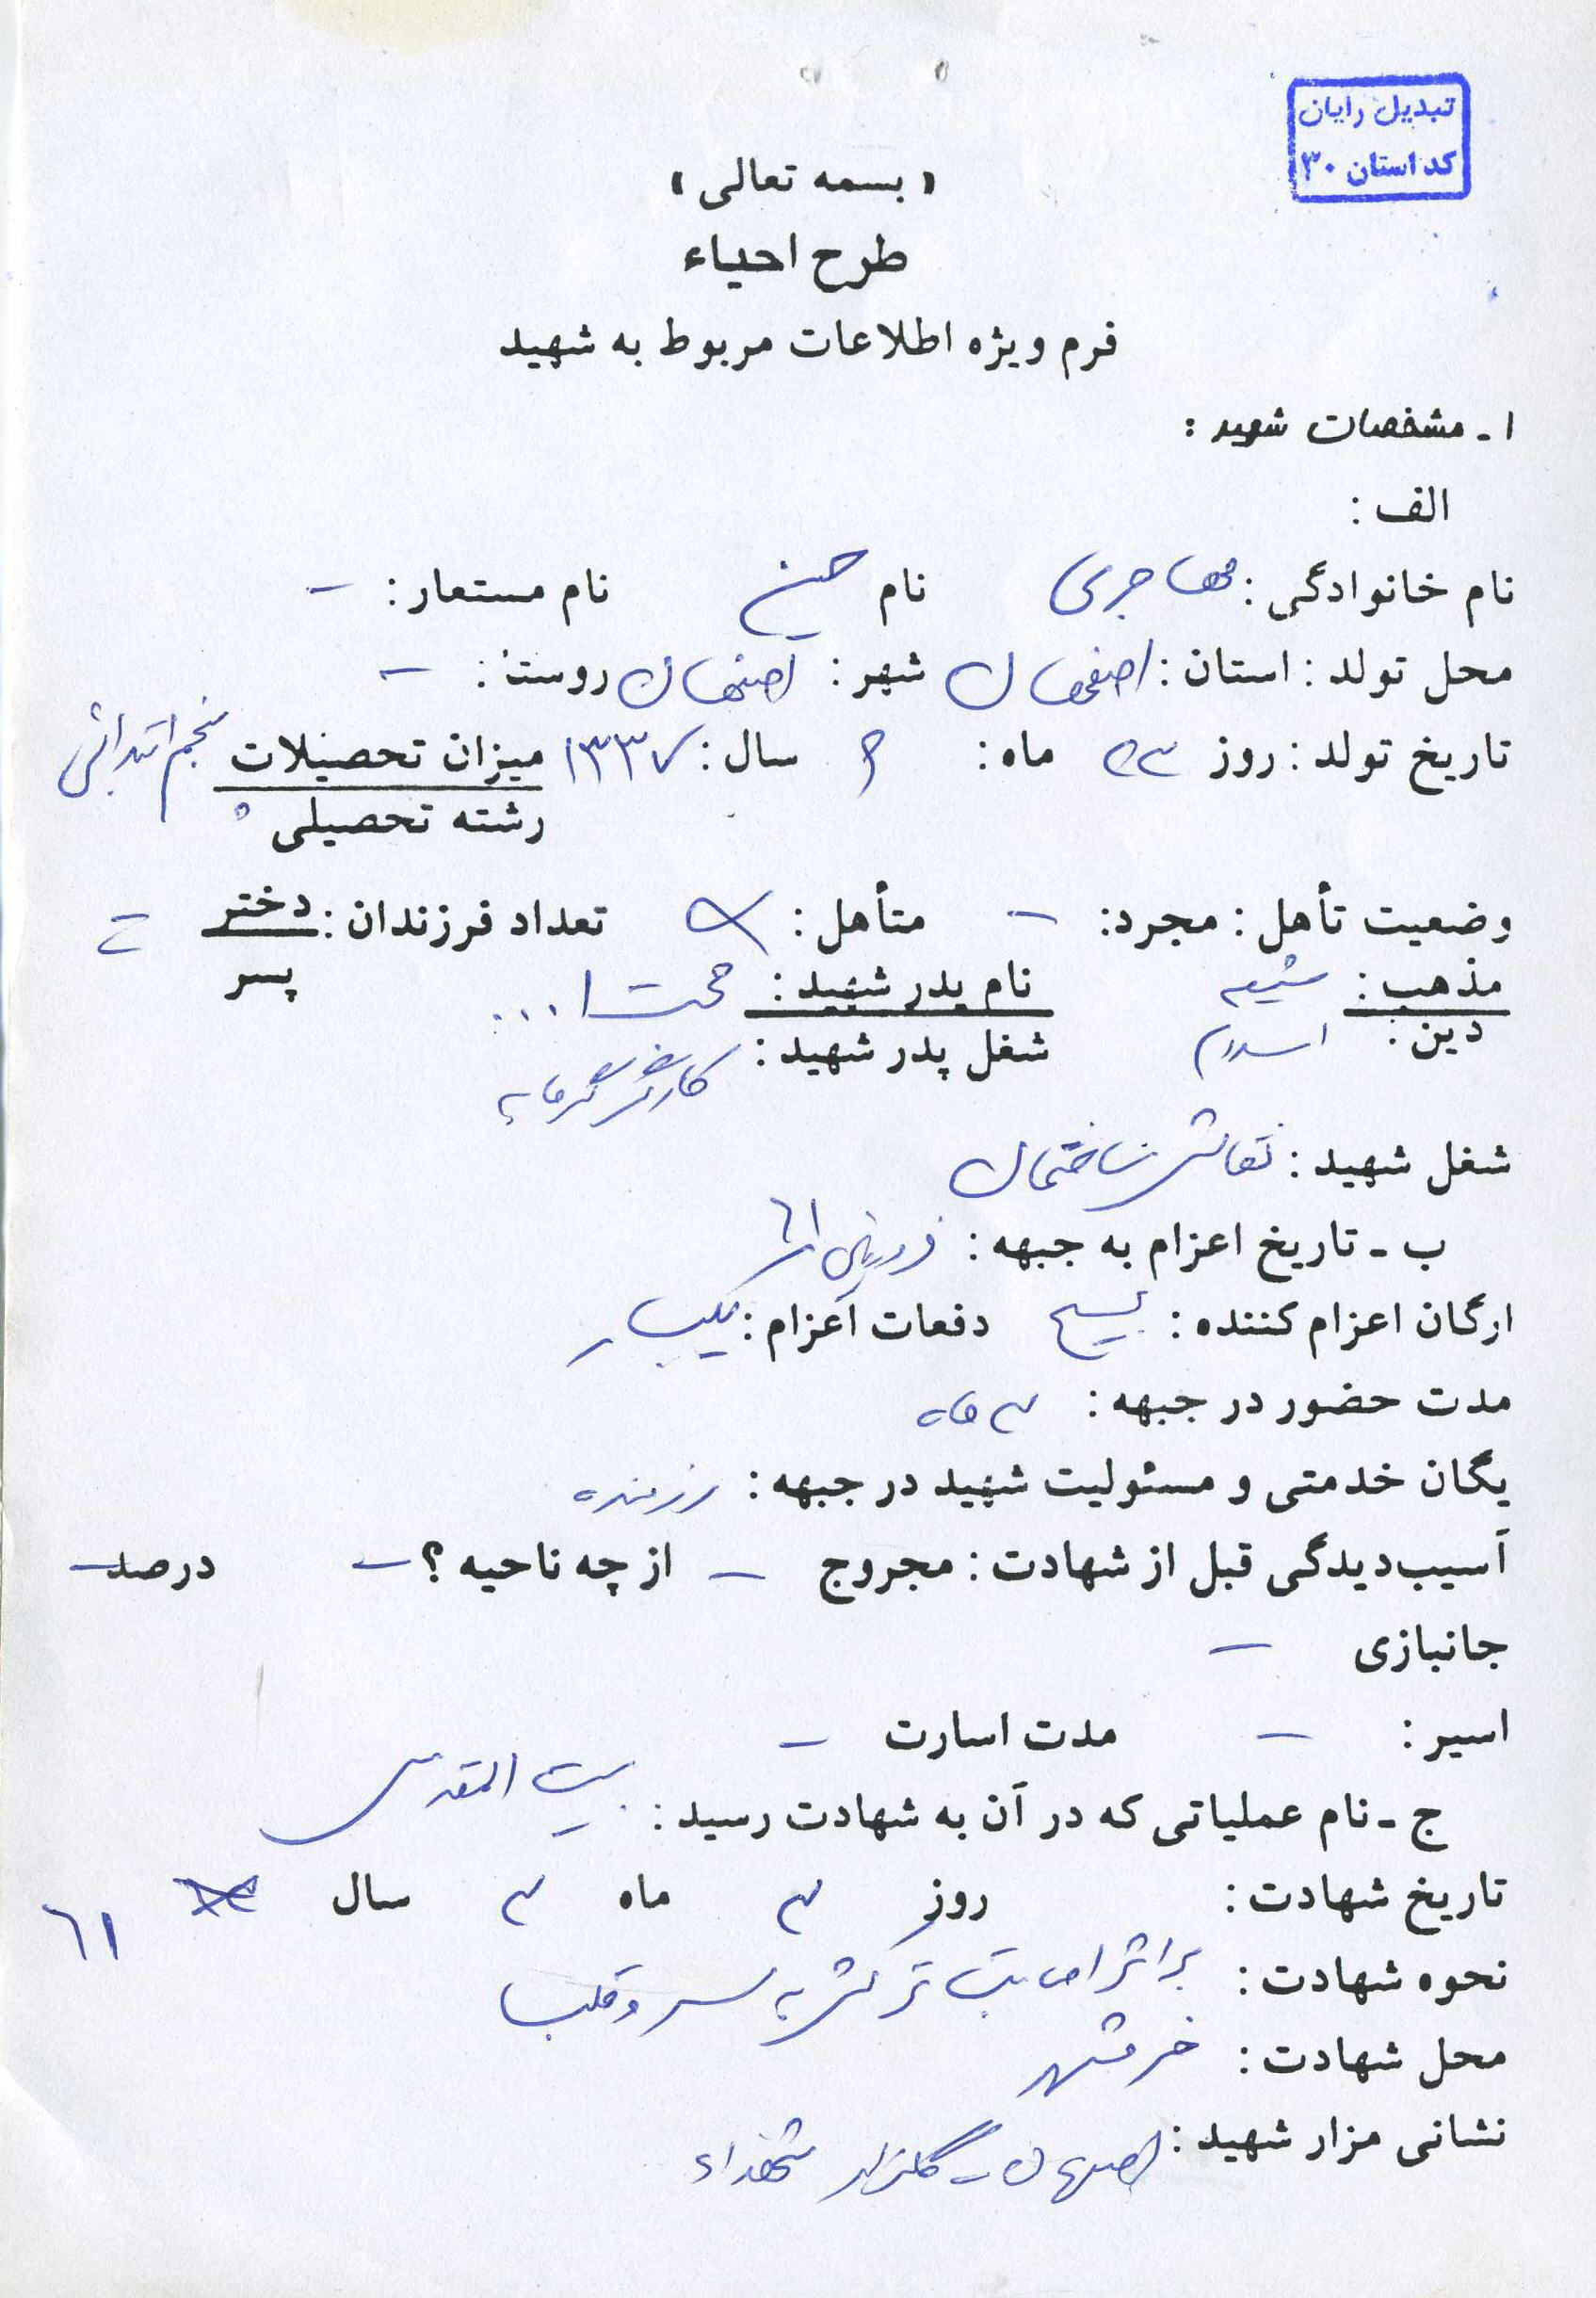 تبدیل رایان
کد استان ۳۰
« بسمه تعالی »
طرح احیاء
فرم ویژه اطلاعات مربوط به شهید
۱ - مشخصات شهید :
الف :
نام خانوادگی : مهاجری نام حسین نام مستعار : –
محل تولد : استان : اصفهان شهر : اصفهان روستا : –
تاریخ تولد : روز ماه : ۶ سال : ۱۳۳۷ میزان تحصیلات پنجم ابتدائی
رشته تحصیلی
وضعیت تأهل : مجرد : – متأهل : تعداد فرزندان : دختر –
پسر
مذهب : شیعه نام پدر شهید : حجت ا...
دین : اسلام شغل پدر شهید : کارگر گرمابه
شغل شهید : نقاش ساختمان
ب - تاریخ اعزام به جبهه : فروردین ۶۱
ارگان اعزام کننده : بسیج دفعات اعزام : یکبار
مدت حضور در جبهه : ۳ ماه
یگان خدمتی و مسئولیت شهید در جبهه : رزمنده
آسیب‌دیدگی قبل از شهادت : مجروح – از چه ناحیه ؟ – درصد –
جانبازی –
اسیر : – مدت اسارت –
ج - نام عملیاتی که در آن به شهادت رسید : بیت المقدس
تاریخ شهادت : روز ۳ ماه ۳ سال ۶۱
نحوه شهادت : بر اثر اصابت ترکش به سر و قلب
محل شهادت : خرمشهر
نشانی مزار شهید : اصفهان - گلزار شهداء